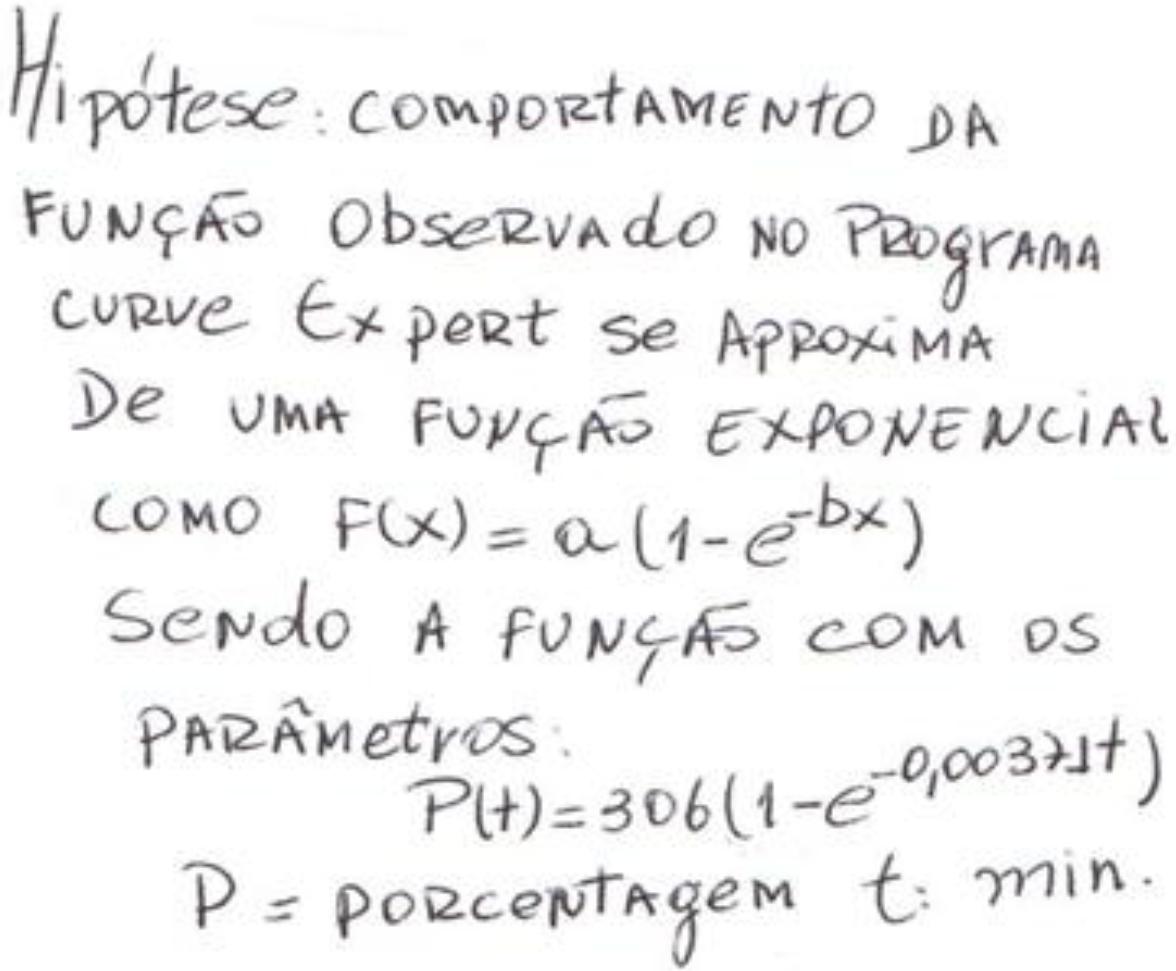 Hipótese: COMPORTAMENTO DA
FUNÇÃO Observado NO PROgrAMA
CURVE Expert se APROXiMA
De UMA FUNÇÃO EXPONENCIAL
COMO F(x) = a(1-e^{-bx})
Sendo A FUNÇÃO COM OS
PARÂMetros:
P(t)=306(1-e^{-0,00371t})
P = PORCENTAgem t: min.